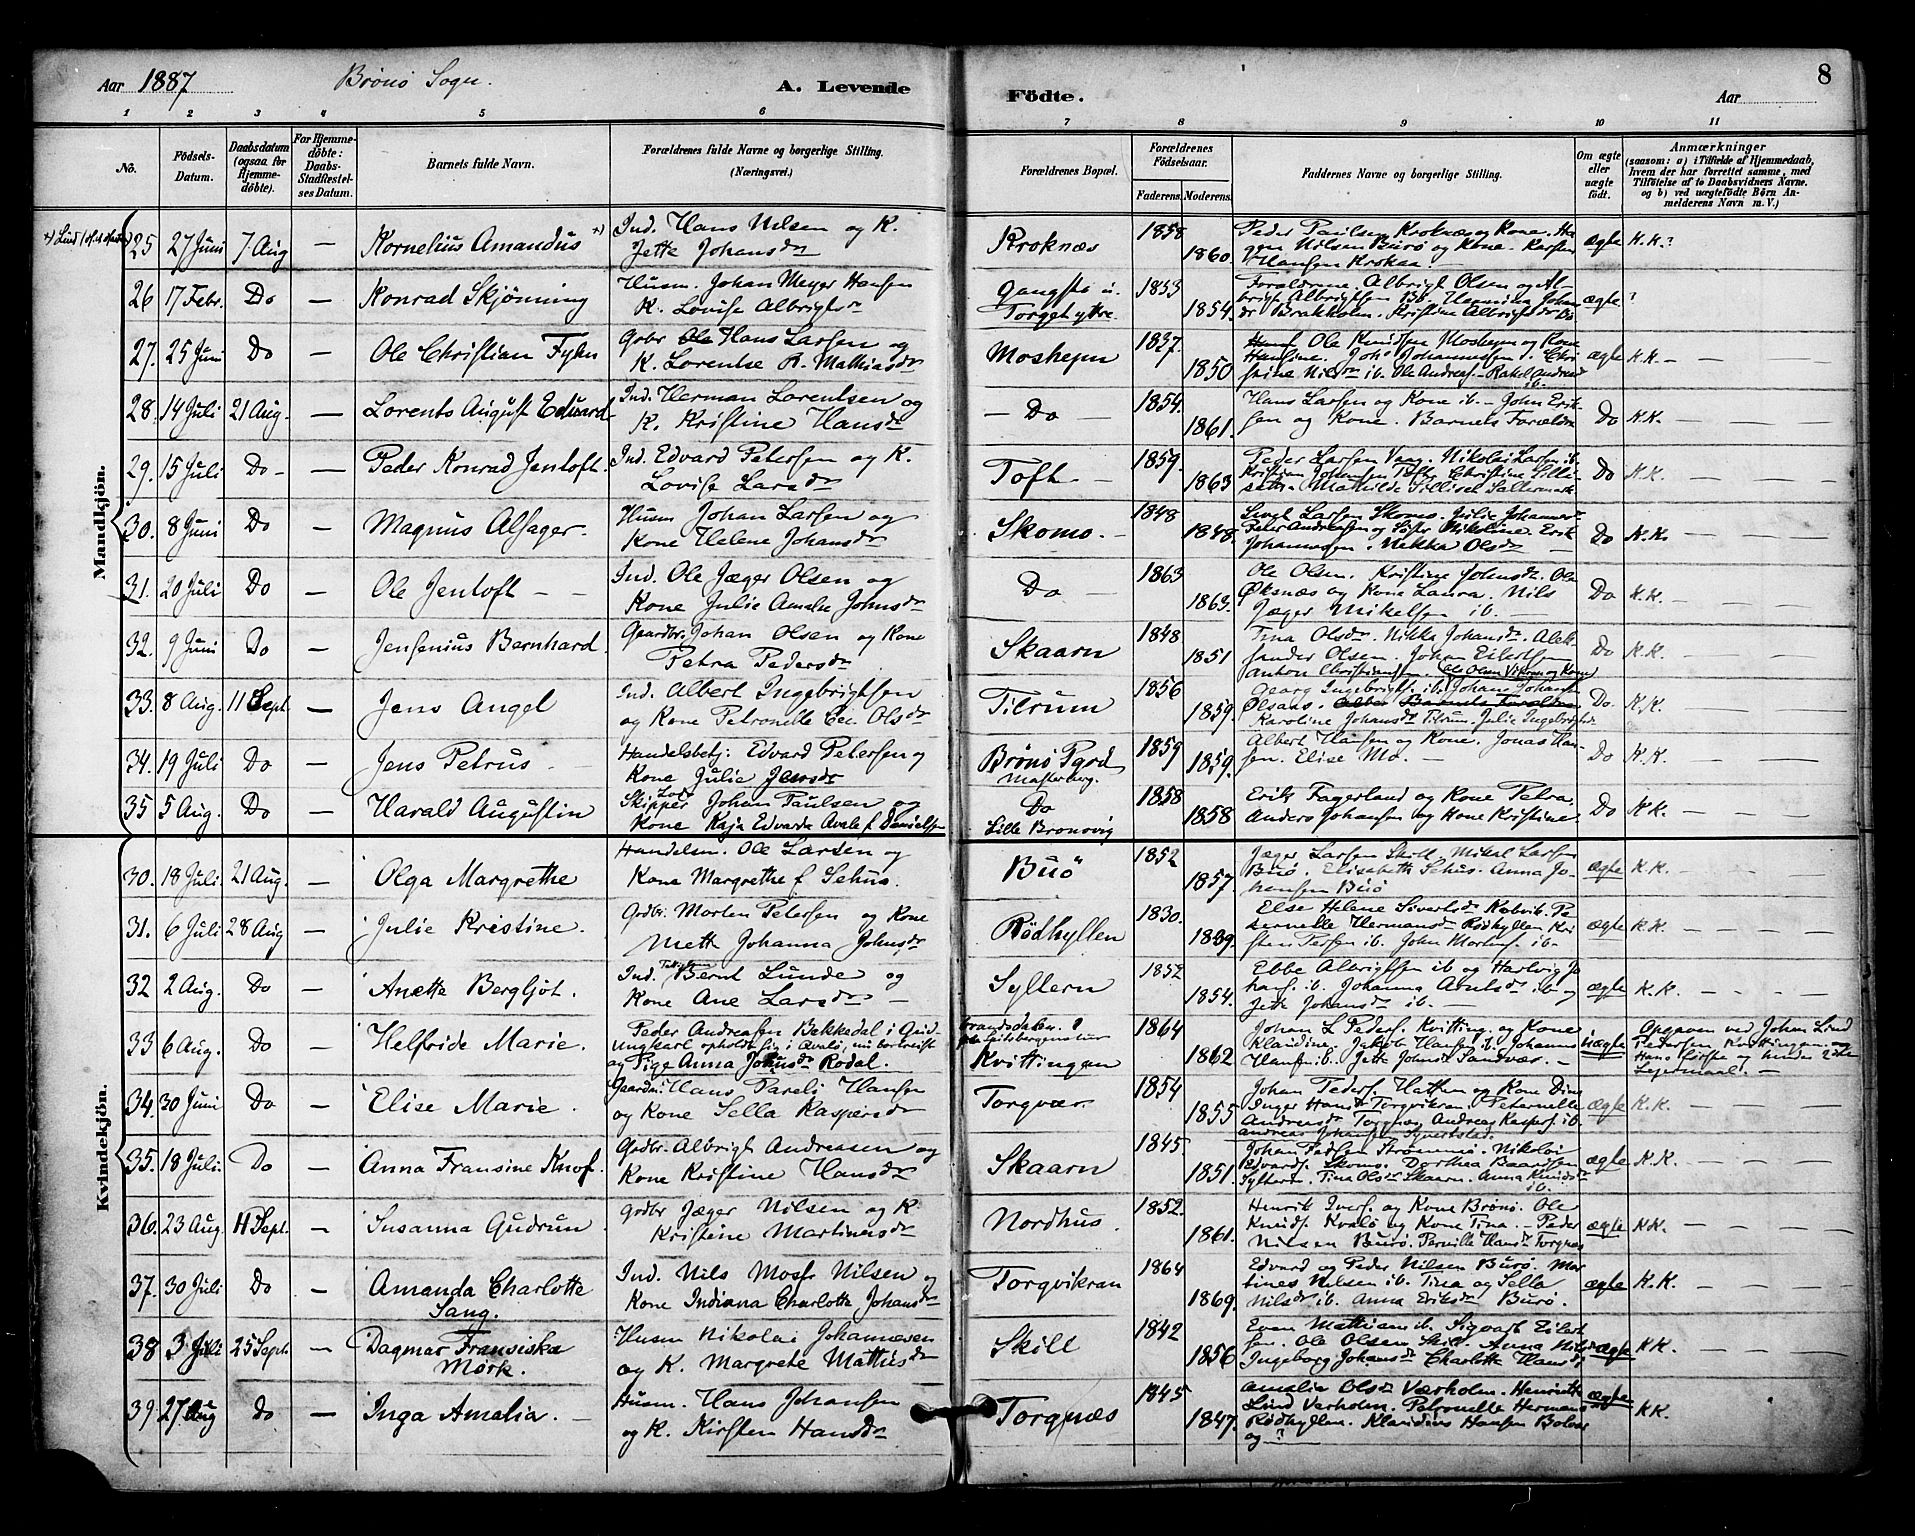 Aar 1887 Brønø Sogn. A. Levende Födte. Aar 8
1 2 3 4 5 6 7 8 9 10 11
No. Födsels-Datum. Daabsdatum (ogsaa for Hjemmedöbte). For Hjemmedöbte: Daabs-Stadfestelses Datum. Barnets fulde Navn. Forældrenes fulde Navne og borgerlige Stilling. (Næringsvei.) Forældrenes Bopæl. Forældrenes Födselsaar. Faderens. Moderens. Faddernes Navne og borgerlige Stilling. Om ægte eller uægte födt. Anmærkninger (saasom: a) i Tilfælde af Hjemmedaab, hvem der har forrettet samme, med Tilföielse af to Daabsvidners Navne, og b) ved uægtefödte Börn Anmelderens Navn m. V.)
Mandkjön.
25 27 Juni 7 Aug — Kornelius Amandus Ind. Hans Nilsen og K. Jette Johansdr Kroknæs 1858 1860. Peder Paulsen Kroknæs og Kone. Nilsen Burø og Kone. Hansen Krokaa — ægte K.K.?
26 17 Febr. Do — Konrad Skjønning Husm. Johan Meyer Hansen K. Lovise Albrigtsdr Torget yttre. 1853 1854. Forældrene. Albrigt Olsen Brakholm. Kristine Albrigtsdr ægte ?
27. 25 Juni Do — Ole Christian Fyhn Gdbr Ole Hans Larsen og K. Lorentse B. Mathiasdr Mosheim 1837. 1850 Ole Knudsen Mosheim og Kone Hansine. Joh. Johannessen. Nilsdr ib. Ole Andreas. Rakel ib. ægte K.K. —
28. 14 Juli 21 Aug. — Lorents August Edvard Ind. Herman Lorentsen og K. Kristine Hansdr — Do — 1854. 1861. Hans Larsen og Kone ib. — John Eriksen og Kone. Barnets Forældre Do K.K. —
29. 15 Juli Do — Peder Konrad Jentoft. Ind. Edvard Petersen og K. Lovise Larsdr Toft — 1859. 1863 Peder Larsen Vaag. Nikolai Larsen ib. Kristian Johansen Toft. Christine Mathilde Do K.K.
30. 8 Juni Do — Magnus Alfager. Husm Johan Larsen og Kone Helene Johansdr Skomo. — 1848 1848. Larsen Skomo. Julie Johannesdr Peter Andreassen og Søster Nikoline. Erik Johannesen. Mekka Olsdr — Do K.K. —
31. 20 Juli Do — Ole Jentoft — — Ind. Ole Jæger Olsen og Kone Julie Amalie Johnsdr Do — 1863 1863. Ole Olsen. Kristine Johnsdr. Ole Øksnæs og Kone Laura. Nils Jæger Mikelsen ib. Do K.K. —
32. 9 Juni Do — Jensenius Bernhard. Gaardbr. Johan Olsen og Kone Petra Pedersdr Skaarn 1848 1851 Tina Olsdr. Nikka Johansdr. Aleksander Olsen. Johan Eilertsen Anton Christiansen. Do K.K. —
33. 8 Aug. 11 Sept. — Jens Angel Ind. Albert Ingebrigtsen og Kone Petronelle Cec. Olsdr Tilrum 1856 1859. Georg Ingebrigts. ib. Johan Johansen Karoline Johansdr Tilrum. Julie Ingebrigtsdr Do K.K.
34. 19 Juli Do — Jens Petrus — Handelsbetj: Edvard Petersen og Kone Julie Jensdr Brønø Pgrd 1859 1859. Albert Hansen og Kone. Jonas Hansen. Elise Mo. — Do K.K —
35 5 Aug. Do — Harald Augustin Skipper Johan Paulsen og Kone Kaja Edvarda Avale f. Danielsen Do Lille Brønøvig 1858 1858 Erik Fagerland og Kone Petra. Anders Johansen og Kone Kristine Do K.K. —
Kvindekjön.
30. 18 Juli. 21 Aug. — Olga Margrethe Handelsm. Ole Larsen og Kone Margrethe f. Sehus. Buö 1852 1857. Jæger Larsen Skill. Mikal Larsen Buö. Elisabeth Sehus. Anna Johansen Buö ægte K.K. —
31. 6 Juli 28 Aug — Julie Kristine. Gdbr. Morten Petersen og Kone Mette Johanna Johnsdr Rødhyllen 1830. 1839. Else Helene Sivertsdr Kalvik. Peternelle Hermansdr Rødhyllen ib. John Mortens. ib. ægte K.K. —
32 2 Aug. Do — Anette Bergljot. Ind. Bernt Lunde og Kone Ane Larsdr — Syltern 1852 1854. Ebbe Albrigtsen ib og Hartvig Johans. ib. Johanna Arntsdr ib og Jette Johansdr ib. — ægte K.K. —
33 6 Aug. Do — Helfride Marie. Peder Andreasen Bækkedal i Ungkarl opholdt sig i Avalö, nu bortreist og Pige Anna Johnsdr Rødal. Kvittingen 1864 1862 Johan L Peders. Kvitting. og Kone Klaudine. Jakob Hansen ib. Johannes Hansen ib. Jette Johnsdr uægte Opgaven ved Johan Lind Pedersen Kvittingen. og hendes 2det Leiermaal. —
34. 30 Juni Do — Elise Marie. Gaardm: Hans Pareli Hansen og Kone Sella Kaspersdr Torgvær. 1854 1855 Johan Peders. Hatten og Kone Dina Inger Hansdr Torgvikran. Peternelle Andreasdr Torgvær. Andreas Kaspers. ib. Andreas Johansen ægte K.K. —
35. 18 Juli. Do — Anna Fransine Knof. Gdbr. Albrigt Andreasen og Kone Kristine Hansdr Skaarn 1845. 1851. Johan Nikolai Edvards. Skomo. Dorthea Syltern. Tina Olsdr Skaarn. Anna Knudsdr ib. ægte K.K. —
36. 23 Aug. 11 Sept. — Susanna Gudrun. Gdbr Jæger Nilsen og K Kristine Martinusdr Nordhus. 1852. 1861. Henrik Ivers. og Kone Brønø. Ole Knuds. Kvalö og Kone Tina. — Peder Nilsen Burö. Pernille Hansdr Torgnæs ægte K.K. —
37. 30 Juli Do — Amanda Charlotte Sang. Ind. Nils Mosfr Nilsen og Kone Indiana Charlotte Johansdr Torgvikran 1864 1869. Edvard og Peder Nilsen Burö. Martines Nilsen ib. Tina og Sella Nilsdr ib. Anna Eriksdr Burö. ægte K.K. —
38 3 Juli 25 Sept. — Dagmar Fransiska Mörk. Husm Nikolai Johannesen og K. Margrete Mathiasdr Skill 1842 1856 Even Mattias ib. Sigvart Eilertsen. Ole Olsen Skill. Anna Nilsdr Ingeborg Johansdr Charlotte Hansdr ægte KK. —
39. 27 Aug Do — Inga Amalia. — Husm. Hans Johansen og K. Kirsten Hansdr Torgnæs 1845 1847. Amalie Olsdr Værholm. Henriette Lind Verholm. Petronelle Hermansdr Rødhyllen. Klaudius Hansen og ? ægte K.K. —